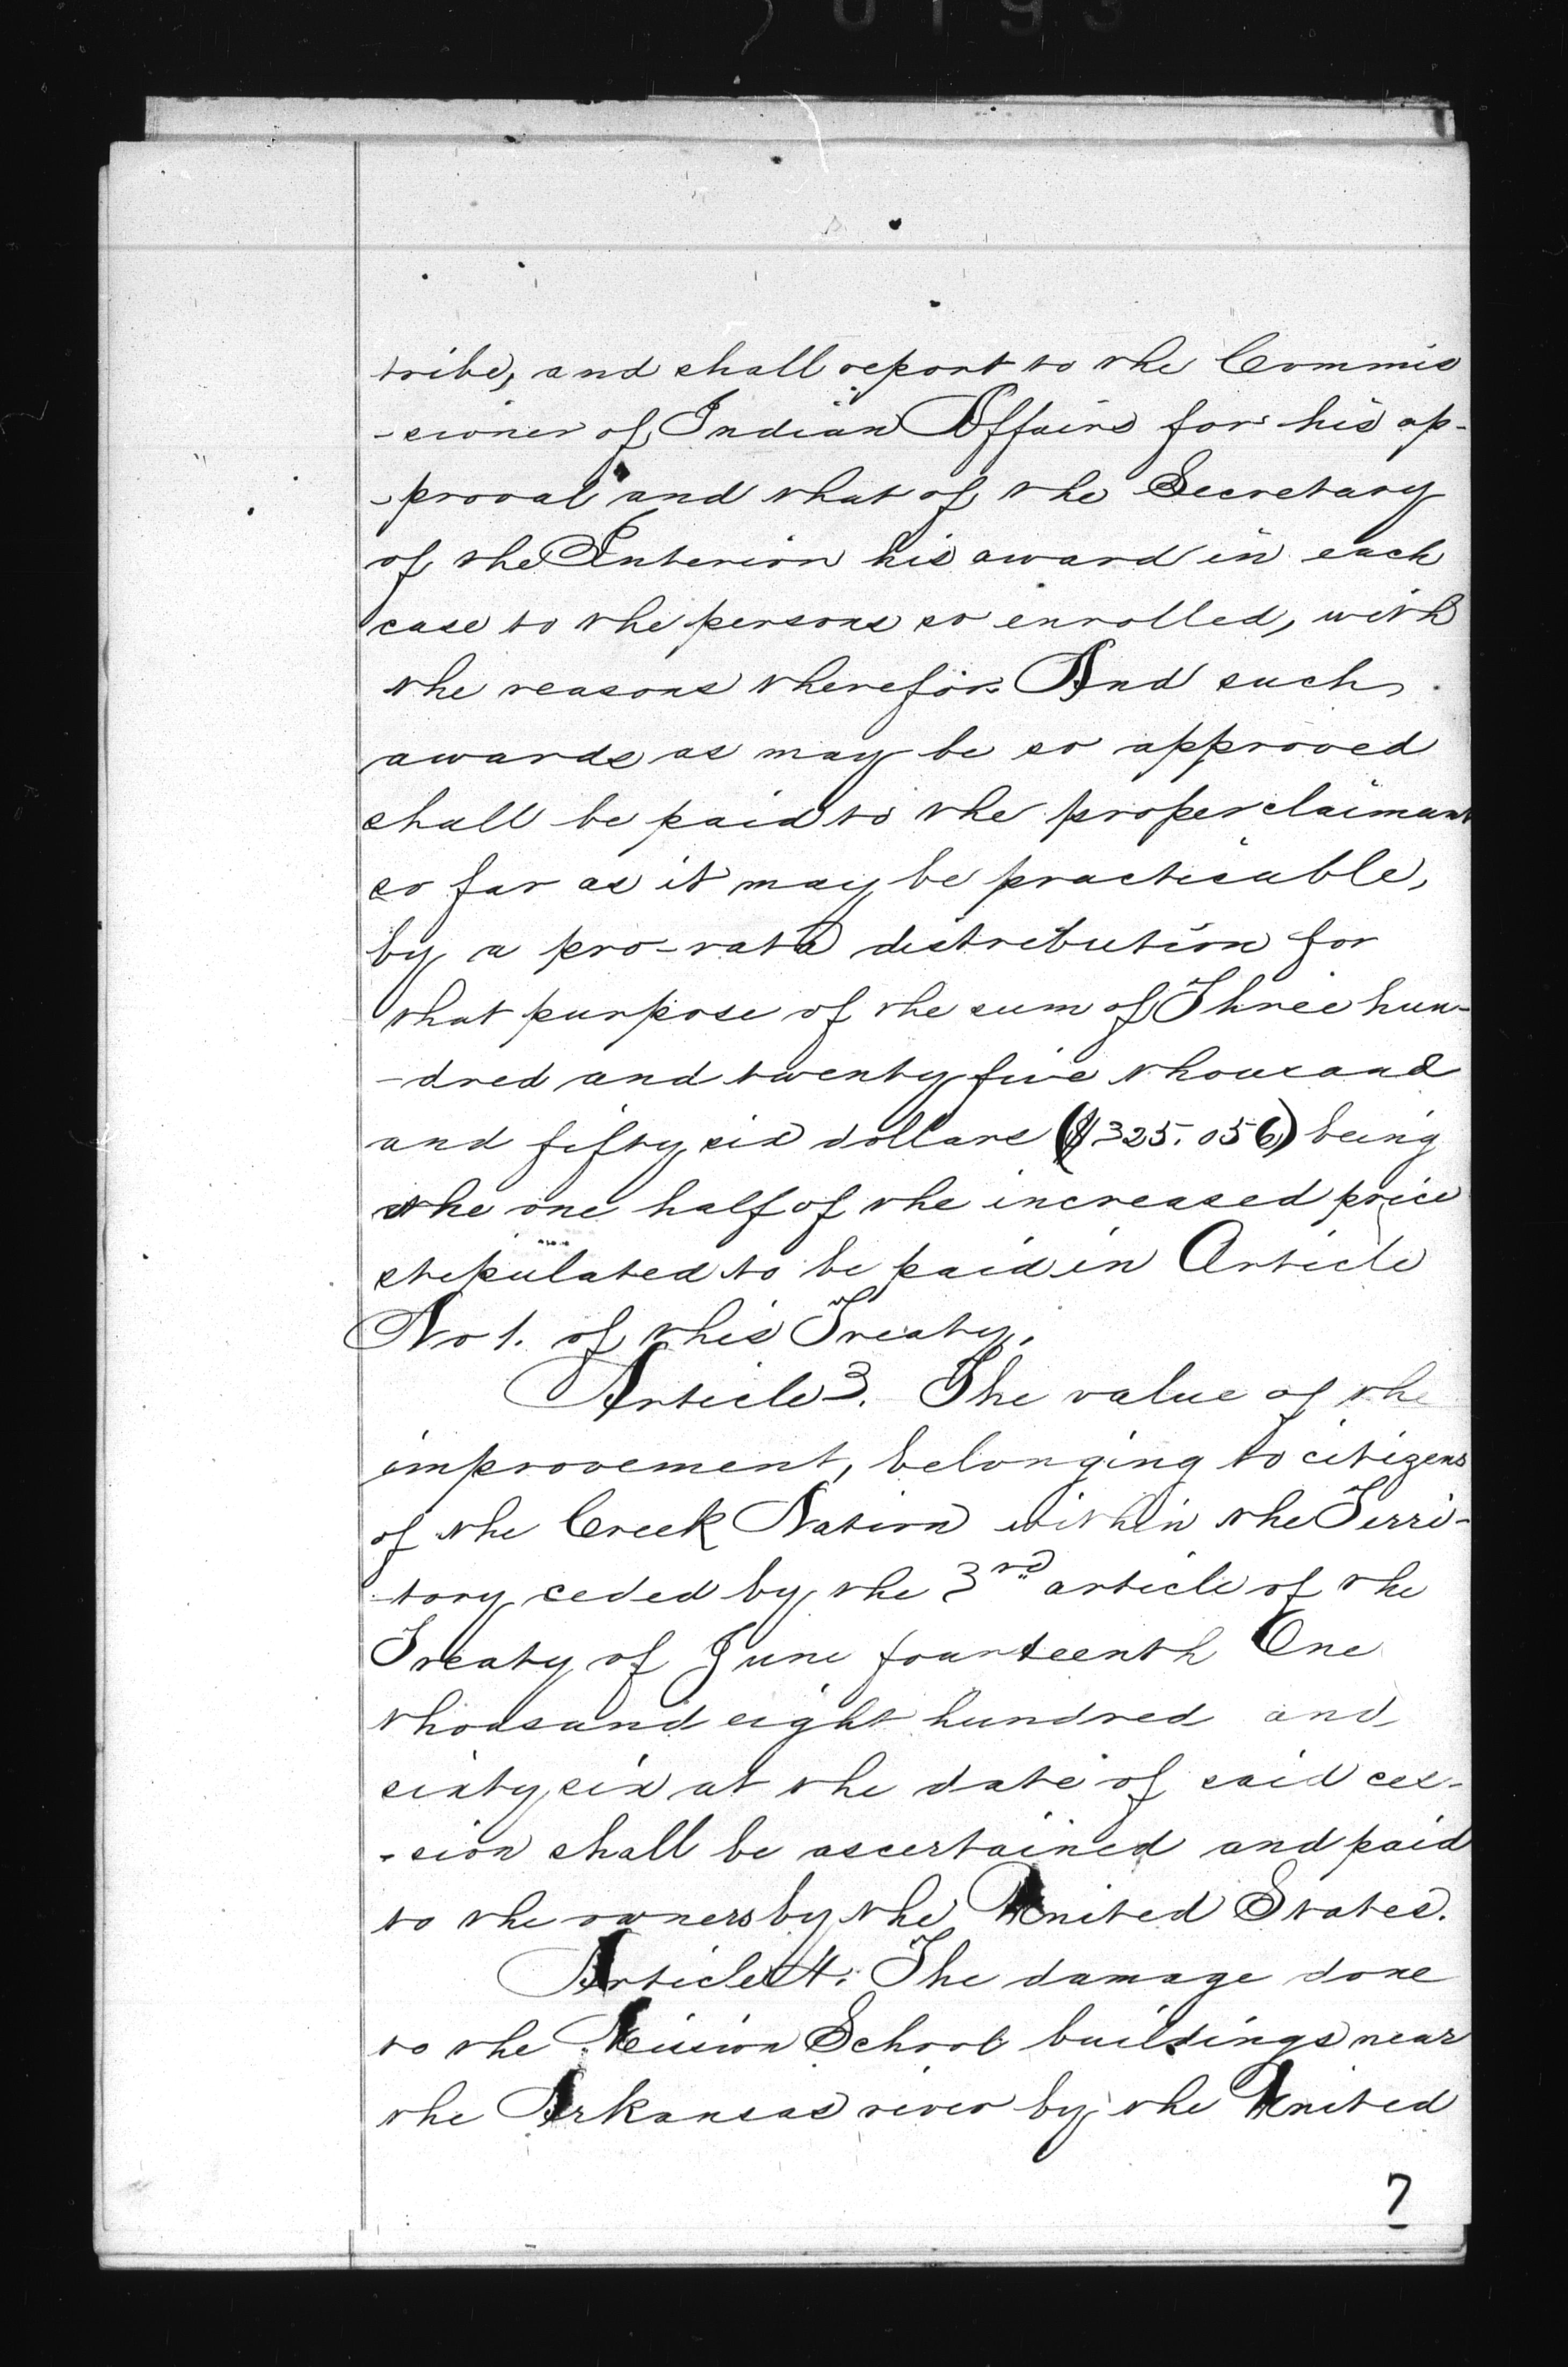 tribe, and shall report to the Commis
-sioner of Indian Affairs for his ap-
-proval and that of the Secretary
of the Interior his award in each
case to the persons so enrolled, with
the reasons therefor. And such
awards as may be so approved
shall be paid to the proper claimant
so far as it may be practicable,
by a pro-rata distribution for
that purpose of the sum of Three hun-
-dred and twenty five thousand
and fifty six dollars ($325.056) being
the one half of the increased price
stipulated to be paid in Article
No 1. of this Treaty.
Article 3. The value of the
improvement, belonging to citizens
of the Creek Nation within the Terri-
tory ceded by the 3rd article of the
Treaty of June fourteenth One
thousand eight hundred and
sixty six at the date of said ces-
-sion shall be ascertained and paid
to the owners by the United States.
Article 4. The damage done
to the Mission School buildings near
the Arkansas river by the United
7